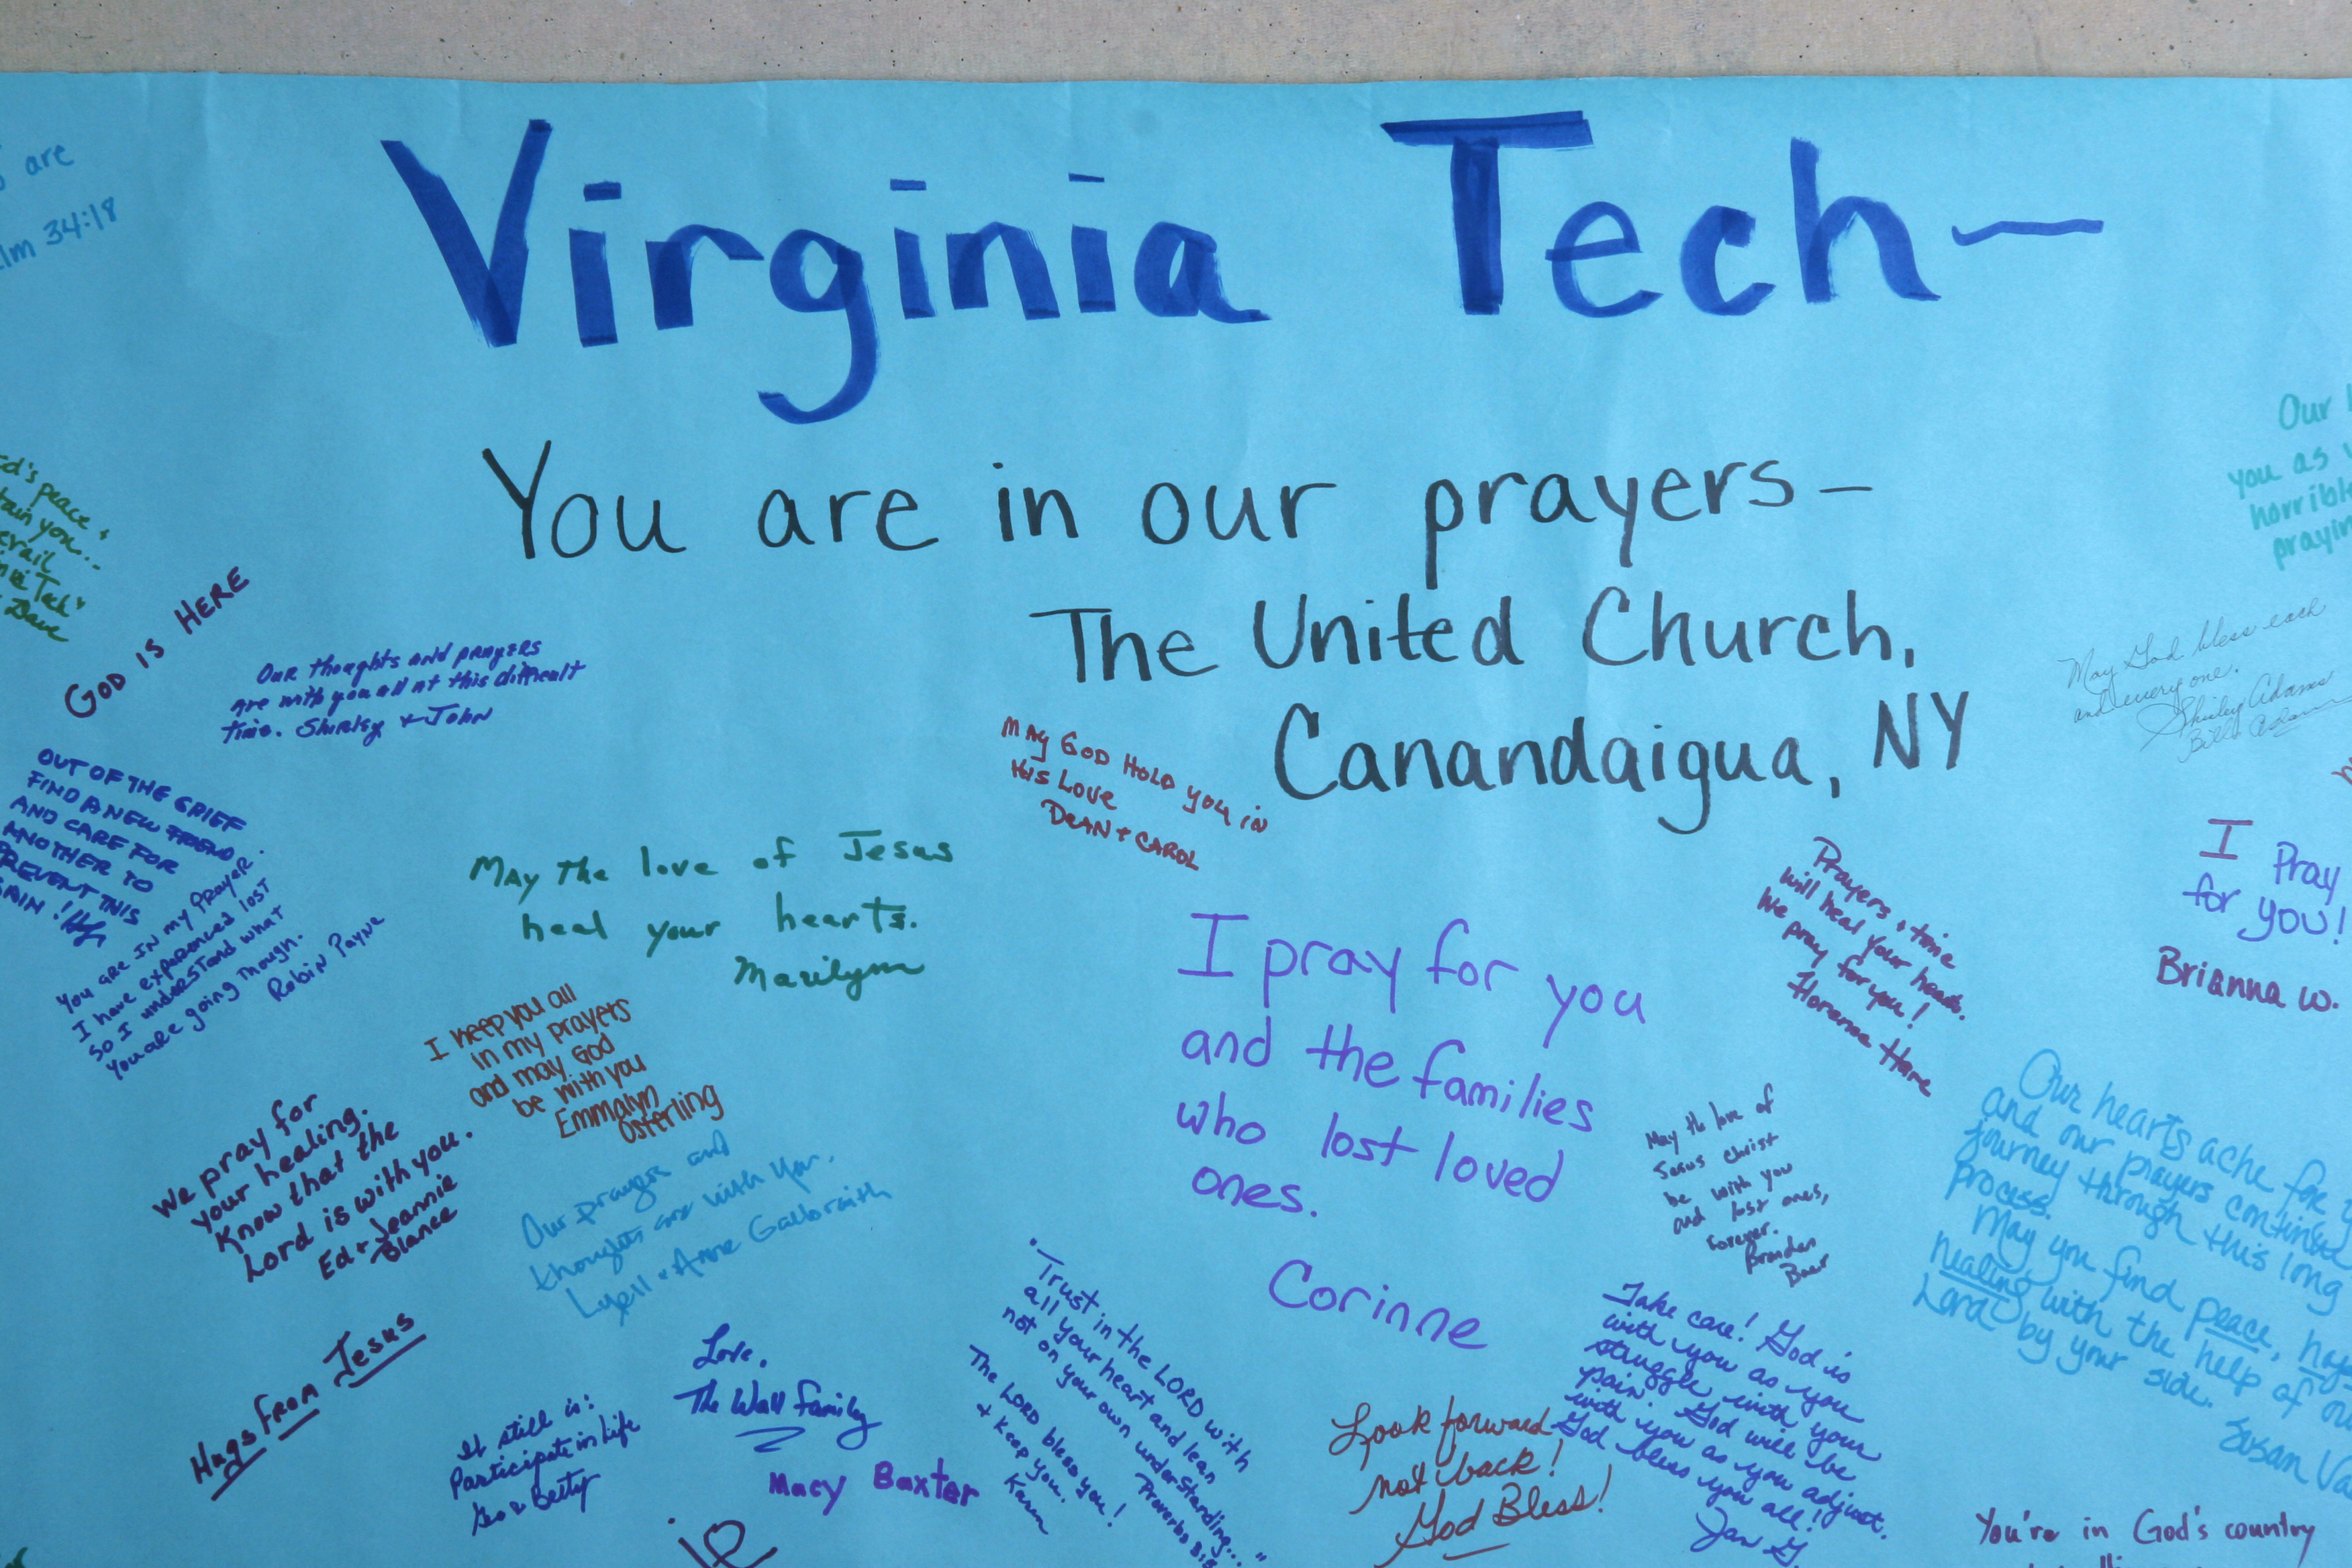 Virginia Tech—
You are in our prayers—
The United Church,
Canandaigua, NY
are
34:18
peace +
you...
Tech"
Dave
GOD IS HERE
Our thoughts and prayers
are with you all at this difficult
time. Shirley + John
OUT OF THE GRIEF
FIND A NEW FRIEND
AND CARE FOR
ANOTHER TO
PREVENT THIS
You are IN my Prayer.
I have experenced lost
so I understand what
you are going though.
Robin Payne
May the love of Jesus
heal your hearts.
Marilynn
May God Hold you in
His Love
Dean + Carol
I keep you all
in my prayers
and may God
be with you
Emmalyn
Osterling
We pray for
your healing.
Know that the
Lord is with you.
Ed + Jeannie
Blance
Our prayers and
thoughts are with you.
Lyell + Anne Galbraith
Hugs From Jesus
It still is:
Participate in Life
Betty
Love,
The Wall family
Macy Baxter
I pray for you
and the families
who lost loved
ones.
Corinne
"Trust in the LORD with
all your heart and lean
not on your own understanding..."
Proverbs
The LORD bless you!
+ keep you.
Karen
Look forward
not back!
God Bless!
Prayers + time
will heal your heads.
We pray for you!
Florence Hare
May the love of
Jesus Christ
be with you
and lost ones,
Forever.
Brandon
Baer
Take care! God is
with you as you
struggle with your
pain. God will be
with you as you adjust.
God bless you all!
Jan G.
Our
you as
May God bless each
and everyone.
Shirley Adams
Bill Adams
I Pray
for you!
Brianna W.
Our hearts ache for
and our prayers continue
journey through this long
process.
May you find peace,
healing with the help of
Lord by your side.
Susan
You're in God's country